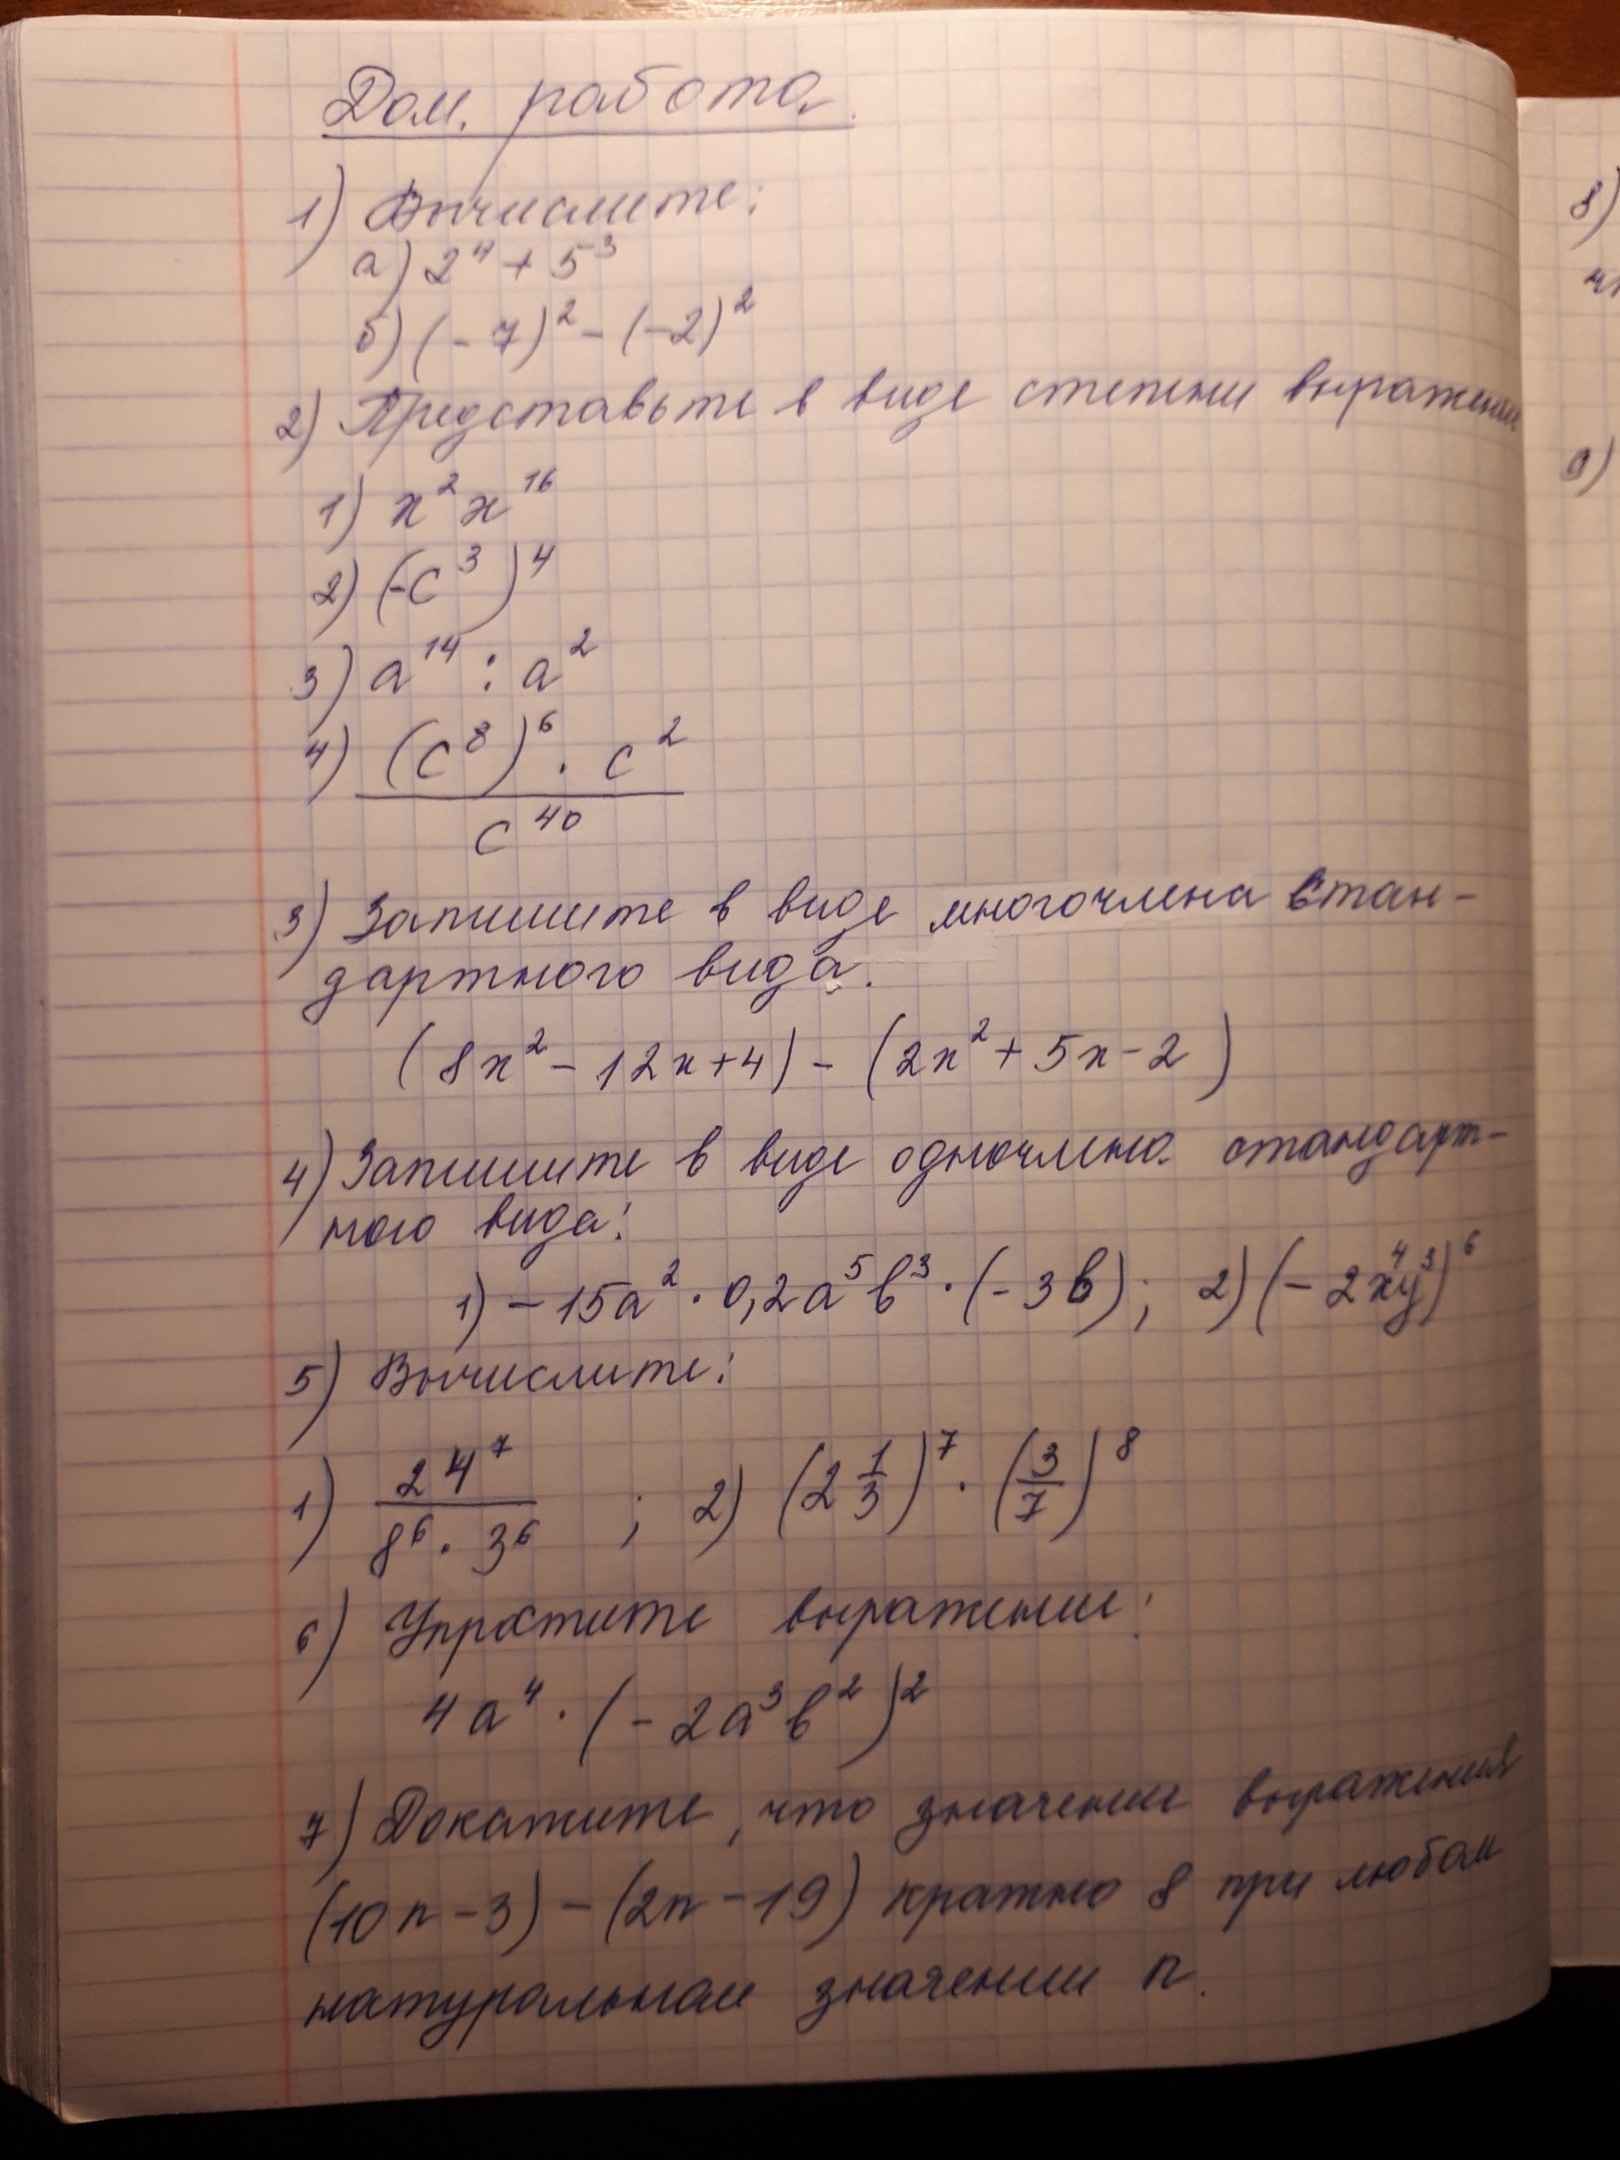 Дом. работа.
1) Вычислите:
а) 2⁴ + 5³
б) (-7)² - (-2)²
2) Представьте в виде степени выражение
1) x² x¹⁶
2) (-c³)⁴
3) a¹⁴ : a²
4) (c⁸)⁶ · c²
c⁴⁰
3) Запишите в виде многочлена стан-
дартного вида.
(8x² - 12x + 4) - (2x² + 5x - 2)
4) Запишите в виде одночлена стандарт-
ного вида:
1) -15a² · 0,2a⁵b³ · (-3b); 2) (-2x⁴y³)⁶
5) Вычислите:
1) 24⁷ / 8⁶ · 3⁶ ; 2) (2 1/3)⁷ · (3/7)⁸
6) Упростите выражение:
4a⁴ · (-2a³b²)²
7) Докажите, что значение выражения
(10n - 3) - (2n - 19) кратно 8 при любом
натуральном значении n.
8)
9)